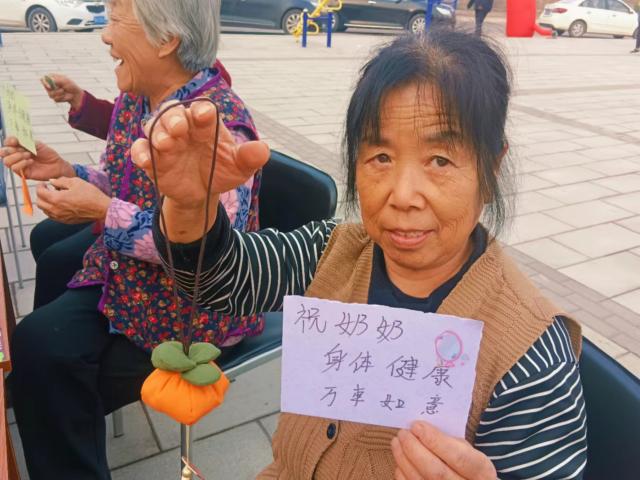 祝奶奶
身体健康
万事如意